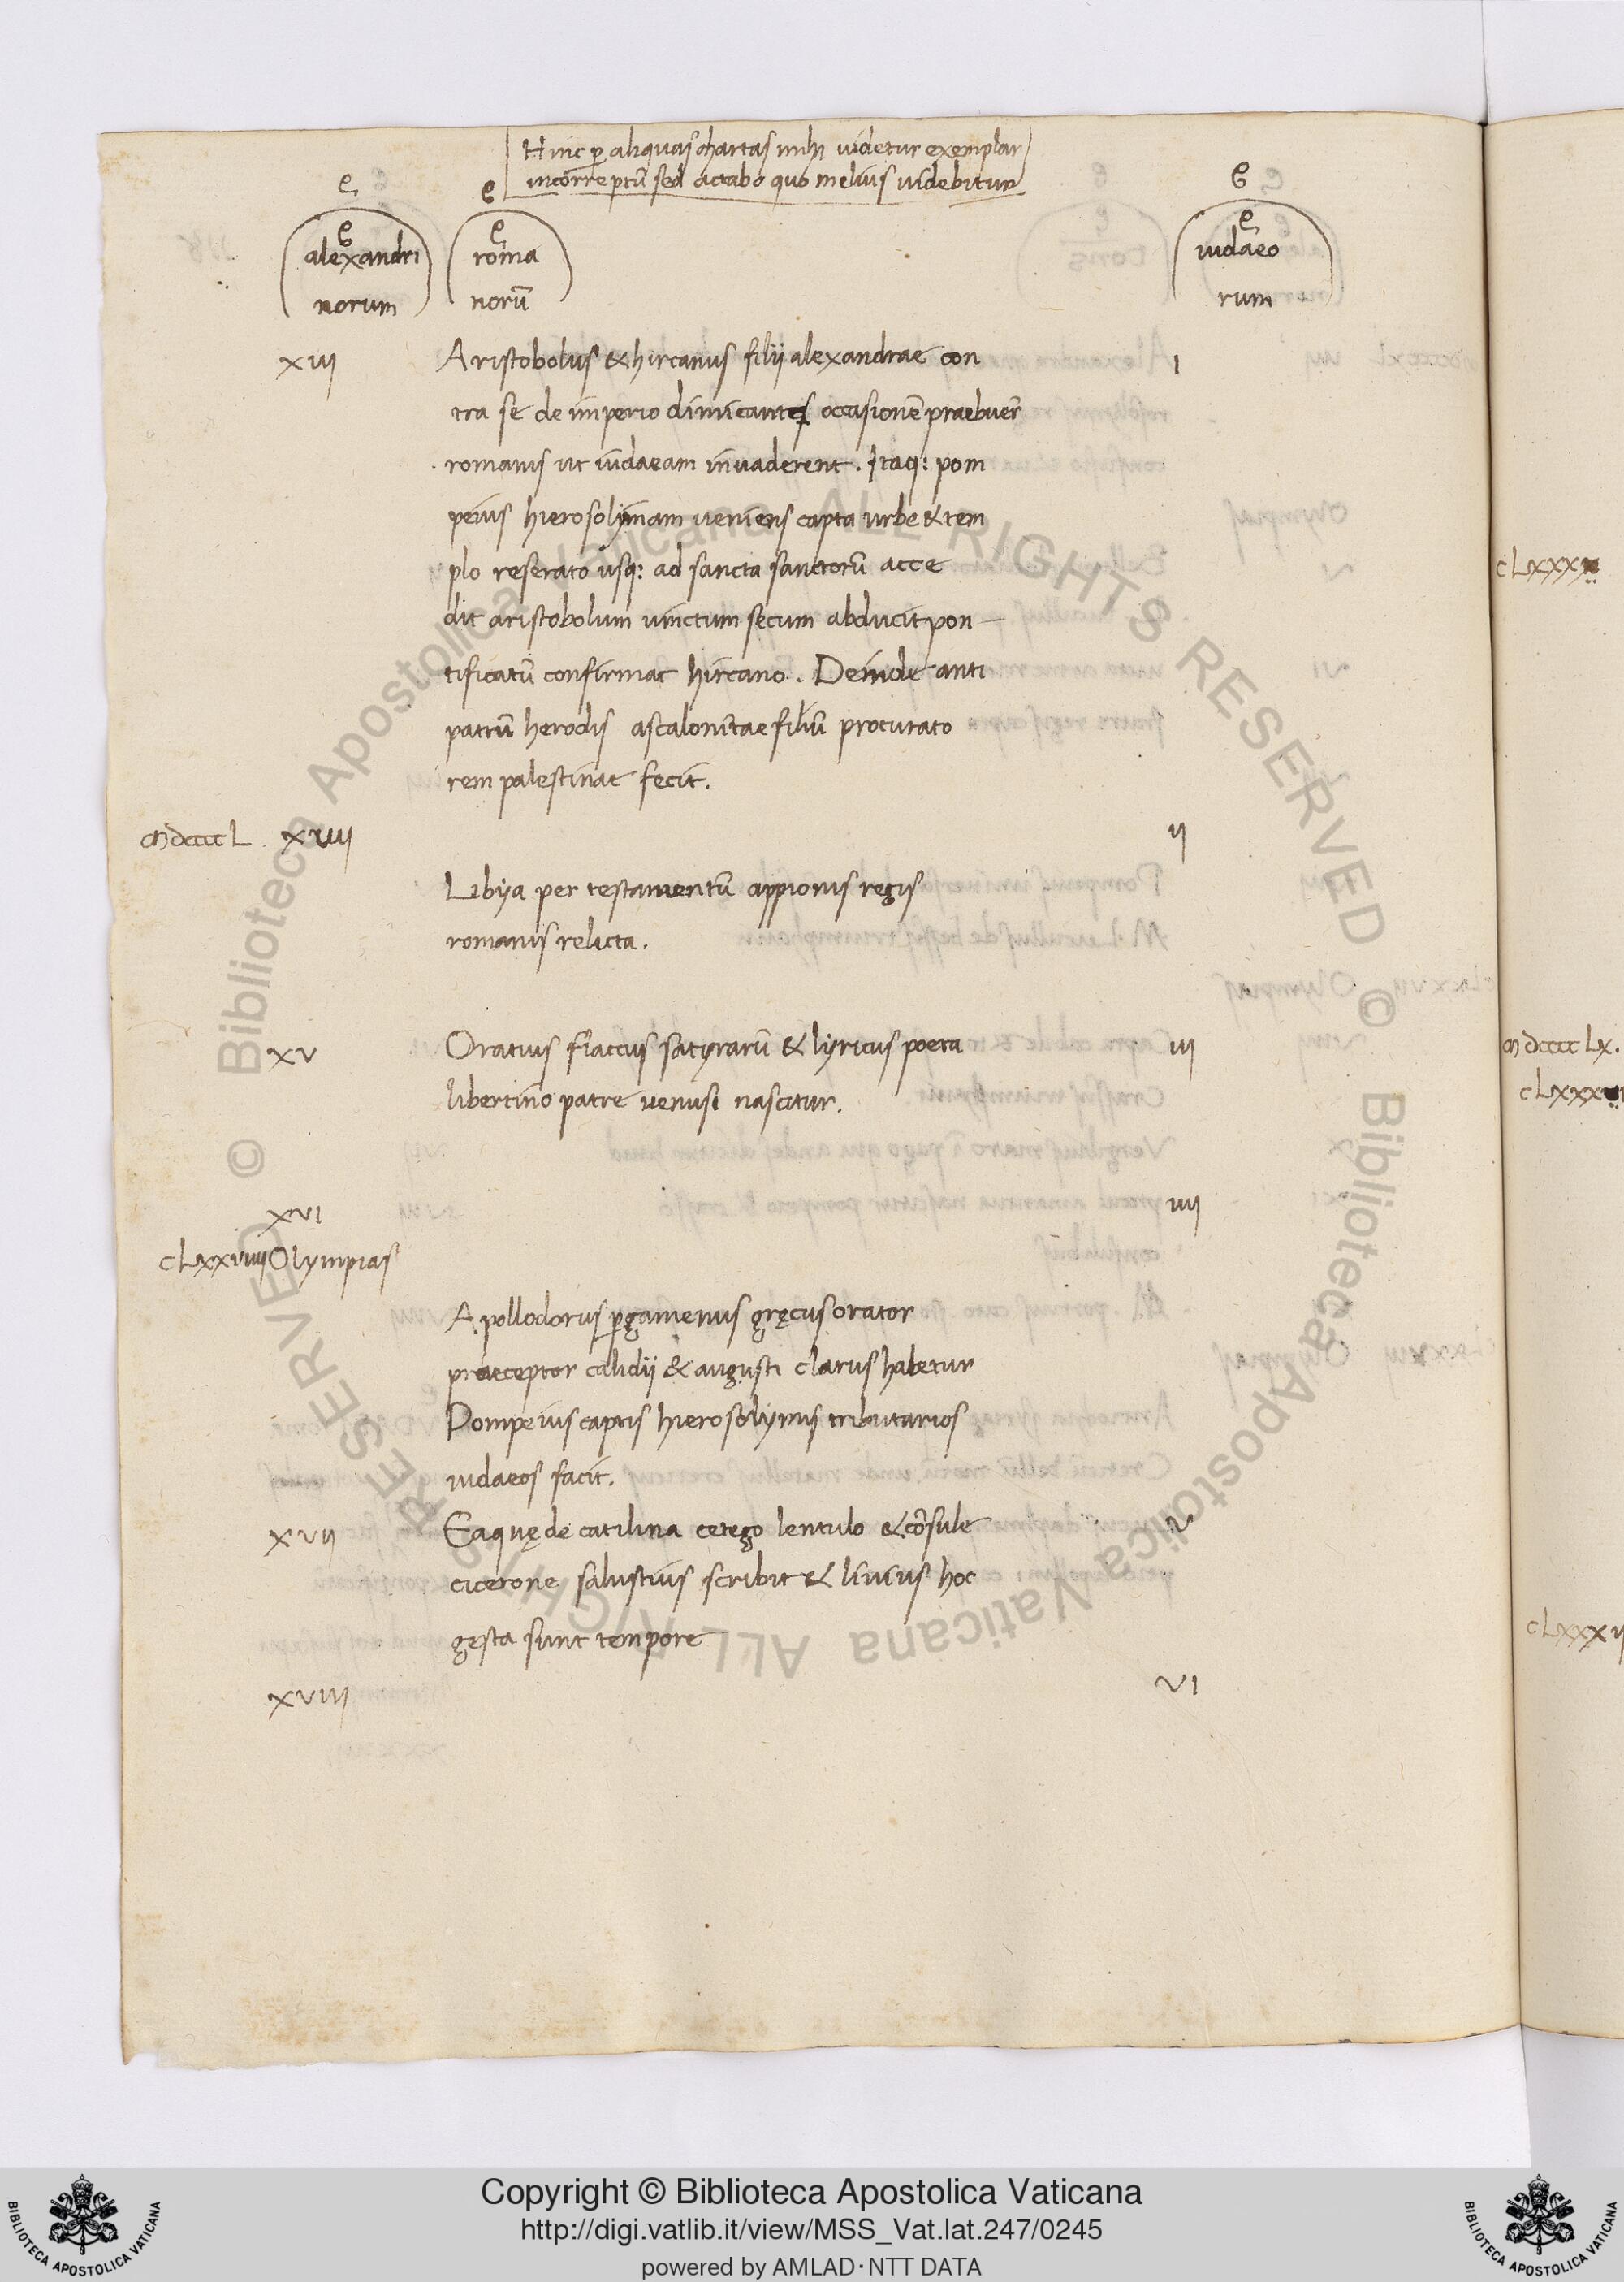 Hinc p aliquas chartas mihi uidetur exemplar
incorreptū sed actabo quo melius uidebitur
alexandri
norum
roma
norū
iudaeo
rum
xiii
Aristobolus & hircanus filij alexandrae con
i
tra se de imperio dimicantes occasionē praebuer̄
romanis ut iudaeam inuaderent. Itaq: pom
peius hierosolymam ueniens capta urbe & tem
plo reserato usq: ad sancta sanctorū acce
dit aristobolum uinctum secum abducit pon
tificatū confirmat hircano. Deinde anti
patrū herodis ascalonitae filiū procurato
rem palestinae fecit.
xiiii
ii
Libya per testamentū appionis regis
romanis relicta.
xv
Oratius flaccus satyrarū & lyricus poeta
iii
libertino patre uenusi nascitur.
xvi
iiii
cLxxviiii Olympias
Apollodorus pgamenus gręcus orator
praeceptor calidij & augusti clarus habetur
Pompeius captis hierosolymis tributarios
iudaeos facit.
xvii
Ea quę de catilina cetego lentulo & cōsule
v
cicerone salustius scribit & liuius hoc
gesta sunt tempore
xviii
vi
Copyright © Biblioteca Apostolica Vaticana
http://digi.vatlib.it/view/MSS_Vat.lat.247/0245
powered by AMLAD·NTT DATA